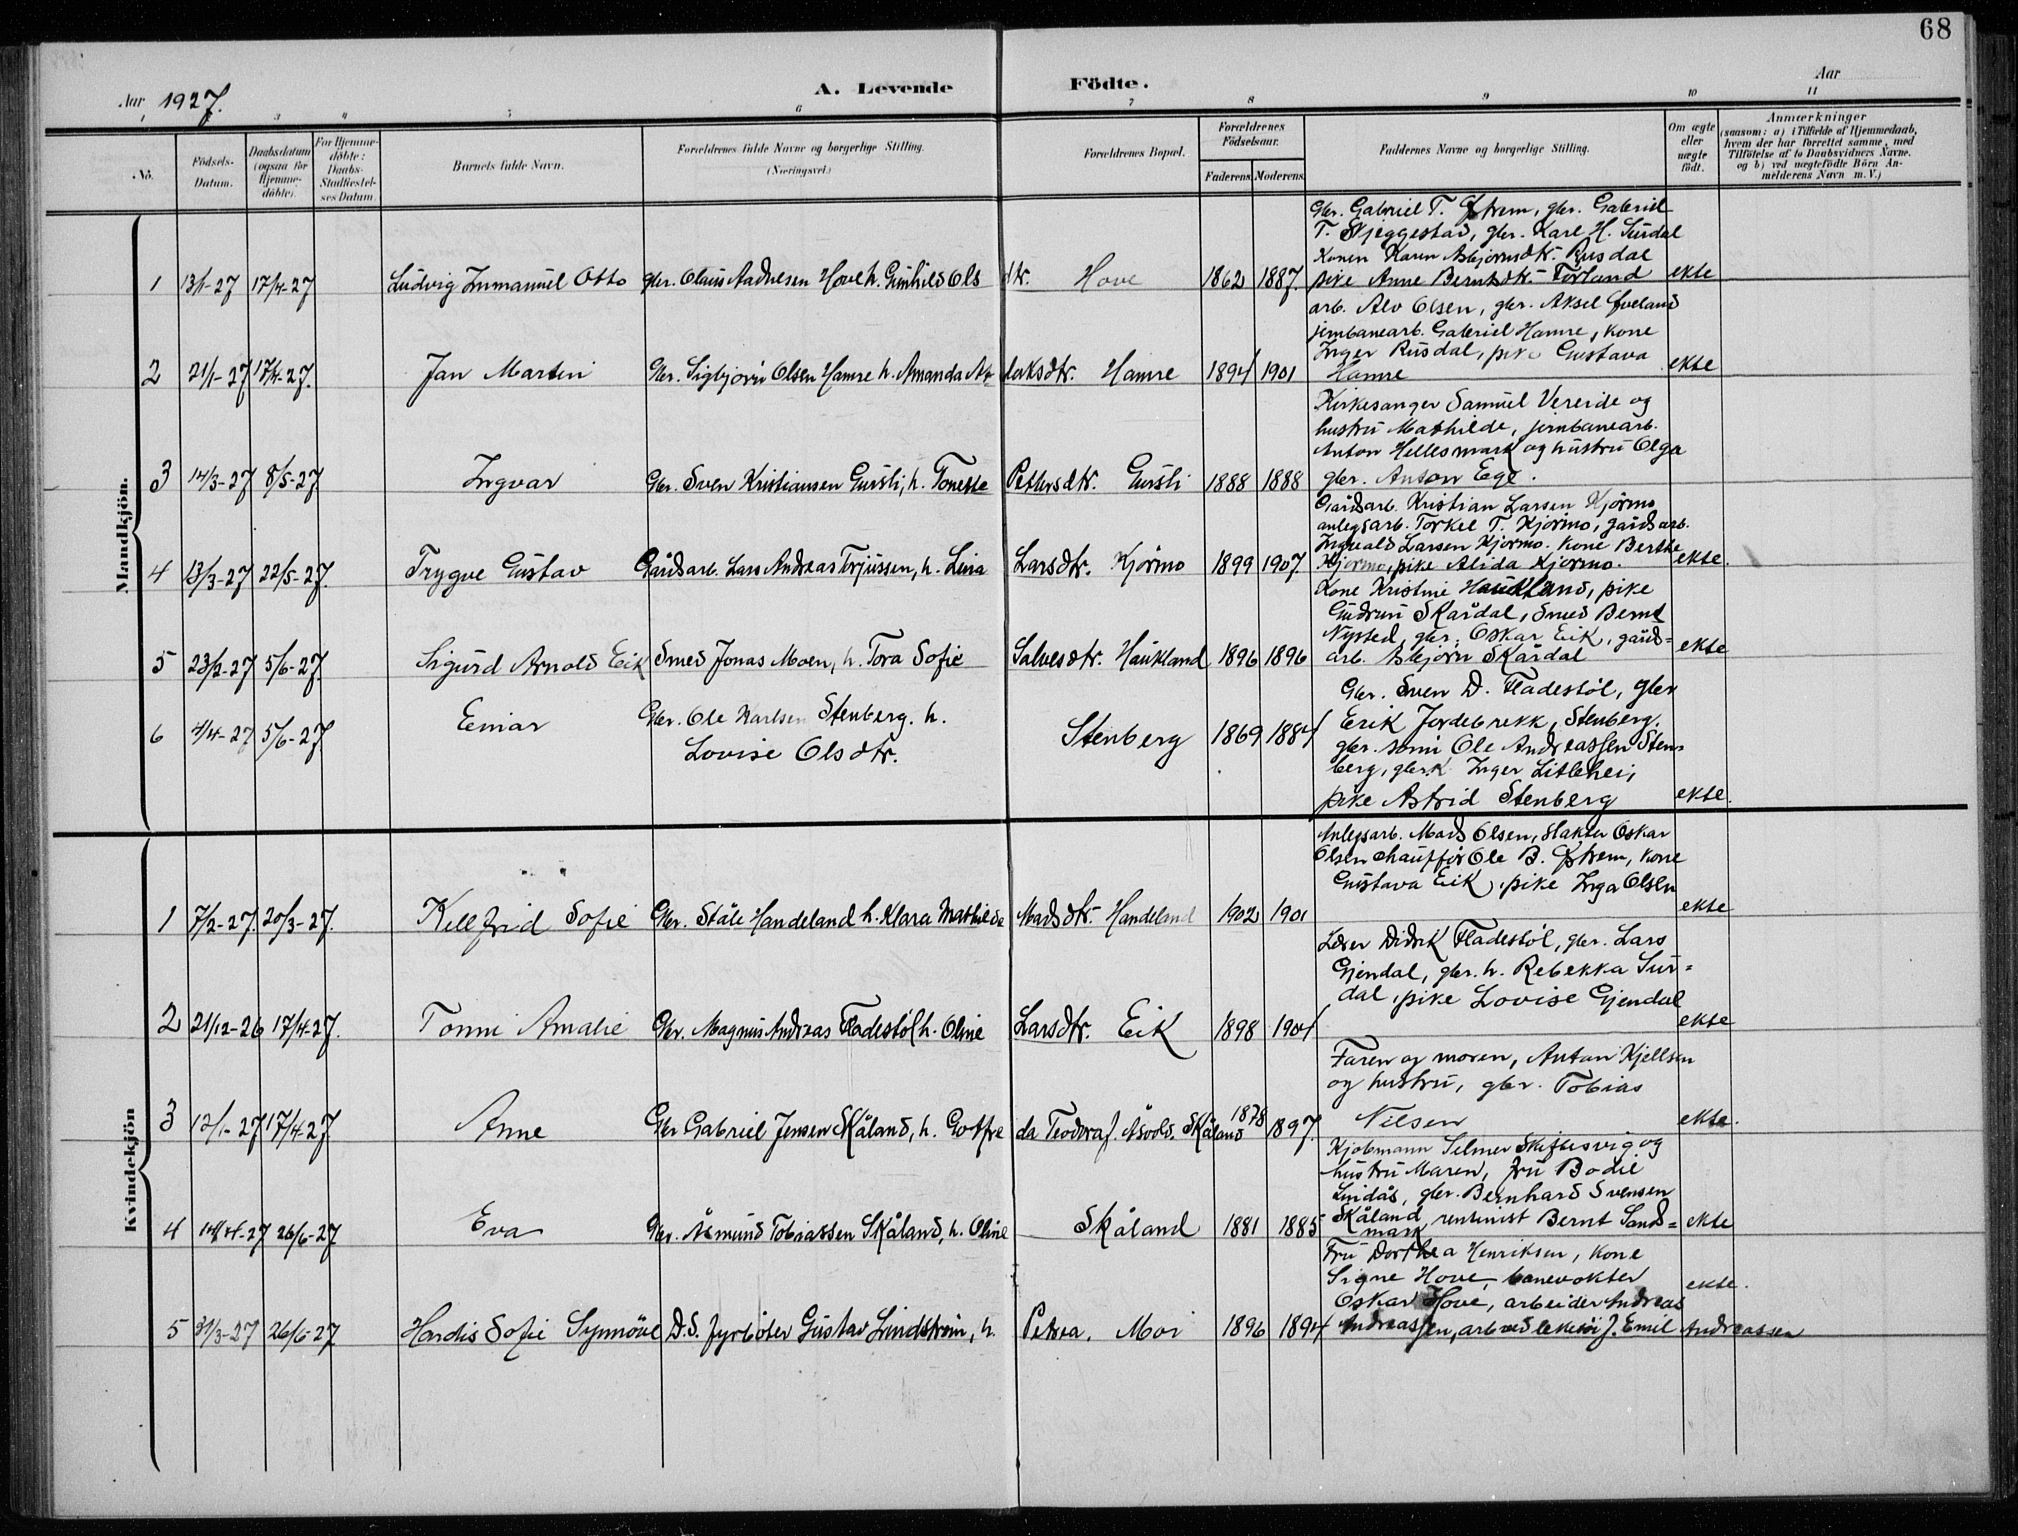 68
Aar 1927.
A. Levende Födte.
Aar
1 3 4 5 6 7 8 9 10 11
No.
Födsels-Datum.
Daabsdatum (ogsaa for Hjemme-döbte).
For Hjemme-döbte: Daabs-Stadfæstel-ses Datum.
Barnets fulde Navn.
Forældrenes fulde Navne og borgerlige Stilling.
(Næringsvei.)
Forældrenes Bopæl.
Forældrenes Födselsaar.
Faderens. Moderens.
Faddernes Navne og borgerlige Stilling.
Om ægte eller uægte födt.
Anmærkninger
(saasom: a) i Tilfælde af Hjemmedaab, hvem der har forrettet samme, med Tilföielse af to Daabsvidners Navne. og b) ved uægtefödte Börn An-melderens Navn m. V.)
Mandkjön.
Gbr. Gabriel T. Østrem, gbr. Gabriel
T. Skjeggestad, gbr. Karl H. Surdal
Konen Karen Asbjørnsdtr. Rusdal
1 13/1-27 17/4-27 Ludvig Immanuel Otto gbr. Olaus Aadnesen Hove h. Gunhild Olsdtr. Hove 1862 1887 pike Anne Berntsdtr. Förland ekte
arb. Alv Olsen, gbr. Aksel Øveland
jernbanearb. Gabriel Hamre, kone
Inger Rusdal, pike Gustava
2 21/1-27 17/4-27. Jan Martin Gbr. Sigbjörn Olsen Hamre h. Amanda Hamre 1894 1901 Hamre ekte
Kirkesanger Samuel Vereide og
hustru Mathilde, jernbanearb.
Anton Hellesmark og hustru Olga
3 14/3-27 8/5-27 Ingvar Gbr. Sven Kristiansen Gursli, h. Tonette Pettersdtr. Gursli 1888 1888 gbr. Anton Ege.
Gårdsarb. Kristian Larsen Kjörmo
anlegsarb. Torkel T. Kjörmo, gårdsarb.
Ingvald Larsen Kjörmo. Kone Berthe
4 13/3-27 22/5-27. Trygve Gustav Gårdsarb. Lars Andreas Trjussen, h. Lina Larsdtr. Kjörmo 1899 1907. Kjormo, pike Alida Kjormo. ekte.
Kone Kristine Haukland, pike
Gudrun Skårdal, Smed Bernt
Nysted, gbr. Oskar Eik, gårds=
5 23/2-27 5/6-27 Sigurd Arnold Eik Smed Jonas Moen, h. Tora Sofie Salvesdtr. Haukland 1896 1896 arb. Asbjörn Skårdal ekte
Gbr. Sven D. Fladestöl, gbr
6 4/4-27 5/6-27 Einar Gbr. Ole Karlsen Stenberg. h. Stenberg 1869 1884 Erik Jordebrekk, Stenberg.
Lovise Olsdtr. gbr. sönn Ole Andreassen Sten=
berg, gbr.k Inger Litlehei,
pike Astrid Stenberg ekte.
Kvindekjön
Anlegsarb. Mads Olsen, slakter Oskar
Olsen chaufför Ole B. Østrem, kone
Gustava Eik, pike Inga Olsen
1 7/2-27. 20/3-27. Kellfrid Sofie Gbr. Ståle Handeland h. Klara Mathilde Madsdtr. Handeland 1902 1901 ekte
Lærer Didrik Fladestöl, gbr. Lars
Gjendal, gbr. h. Rebekka Sur=
dal, pike Lovise Gjendal
2 21/12-26 17/4-27. Tonni Amalie Gbr. Magnus Andreas Fladestöl h. Oline Larsdtr. Eik 1898 1904 ekte
Faren og moren, Anton Kjellsen
og hustru, gbr. Tobias
3 12/1-27 17/4-27 Anne Gbr Gabriel Jensen Skåland, h. Gotfreda Teodora f. Åvold. Skåland 1878 1897. Nilsen ekte.
Kjöbmann Selmer Skiftesvig og
hustru Maren, fru Bodil
Lindås, gbr. Bernhard Svensen
4 14/4-27 26/6-27 Eva Gbr. Åsmund Tobiassen Skåland, h. Oline Skåland 1881 1885 Skåland, rentenist Bernt Sands=mark ekte
Fru Dorthea Henriksen, kone
Signe Hove, banevokter
Oskar Hove, arbeider Andreas ekte.
5 31/3-27 26/6-27 Hardis Sofie Synnöve D.S. fyrböter Gustav Lindström, h. Petrea. Moi 1896 1894 Andreassen, arb. ved J. Emil Andreassen